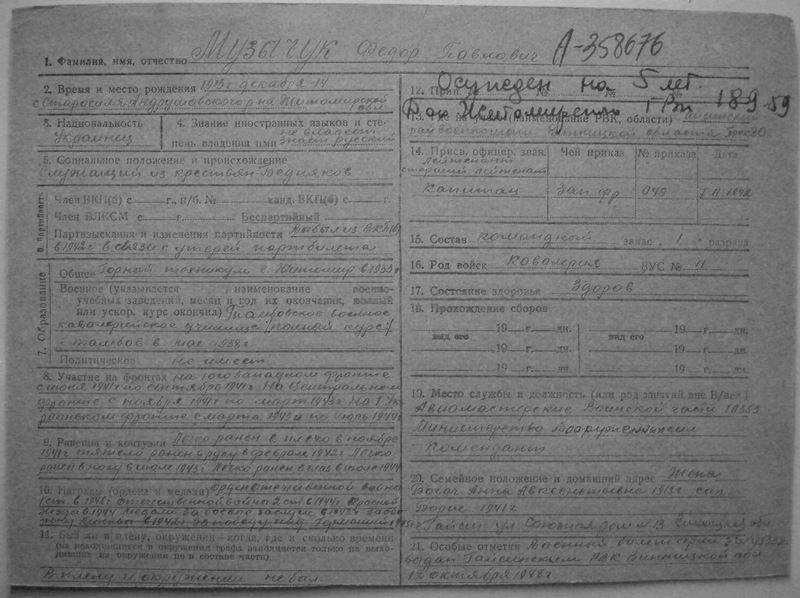 1. Фамилия, имя, отчество МУЗЫЧУК Федор Павлович А-358676
2. Время и место рождения 1913 г декабря-14
с Староселя Андрушовского р-на Житомирской обл
3. Национальность
Украинец
4. Знание иностранных языков и сте-
пень владения ими не владеет
знает русский
5. Социальное положение и происхождение
Служащий из крестьян-бедняков
6. Партийность
Член ВКП(б) с г., п/б. № канд. ВКП(б) с г.
Член ВЛКСМ с г. Беспартийный
Партвзыскания и изменения партийности Выбыл из ВКП(б)
в 1942 г в связи с утерей партбилета
7. Образование
Общее Горный техникум г. Житомир в 1933 г
Военное (указывается наименование военно-
учебных заведений, месяц и год их окончания, полный
или ускор. курс окончил) Тамбовское военное
кавалерийское училище (полный курс)
г Тамбов в мае 1938 г
Политическое не имеет
8. Участие на фронтах на югозападном фронте
с июня 1941 г по сентябрь 1941 г. На Центральном
фронте с ноября 1941 г по март 1943 г На 1 Ук-
раинском фронте с марта 1943 г по июль 1944 г
9. Ранения и контузии Легко ранен в плечо в ноябре
1941 г тяжело ранен в руку в феврале 1942 г Легко
ранен в ногу в июле 1943 г Легко ранен в глаз в июле 1944
10. Награды (ордена и медали) орден отечественной война
1 ст. в 1945 г отечественной война 2 ст в 1944 г. Красной
звезда в 1944 медали за боевые заслуги в 1943 г
в 1942 г за победу над Германией 1945 г
11. Был ли в плену, окружении — когда, где и сколько времени
(на находившихся в окружении графа заполняется только на выхо-
дивших из окружения не в составе части)
В плену и окружении не был
12. Прин.
Осужден на 5 лет.
Док Житомирского ГВК 189-59
13. (наименование РВК, области)
райвоенкомат Винницкой области
14. Присв. офицер. зван. Чей приказ № приказа Дата
лейтенант
старший лейтенант
капитан Зап фр 049 1942
15. Состав командной запас 1 разряда
16. Род войск Кавалерия ВУС № 11
17. Состояние здоровья Здоров
18. Прохождение сборов
19 г. дн. 19 г. дн.
вид его вид его
19 г. дн. 19 г. дн.
19 г. дн. 19 г. дн.
19. Место службы и должность (или род занятий вне В/вед.)
Авиамастерские Воинской части 10353
Министерство Вооруженных сил
Комендант
20. Семейное положение и домашний адрес Жена
Анна Авксентьевна 1913 г. сын
Борис 1941 г
г Гайсин ул Союзная дом № 13 Винницкая обл
21. Особые отметки Военный билет серии
выдан Гайсинским РВК Винницкой обл
октября 1948 г